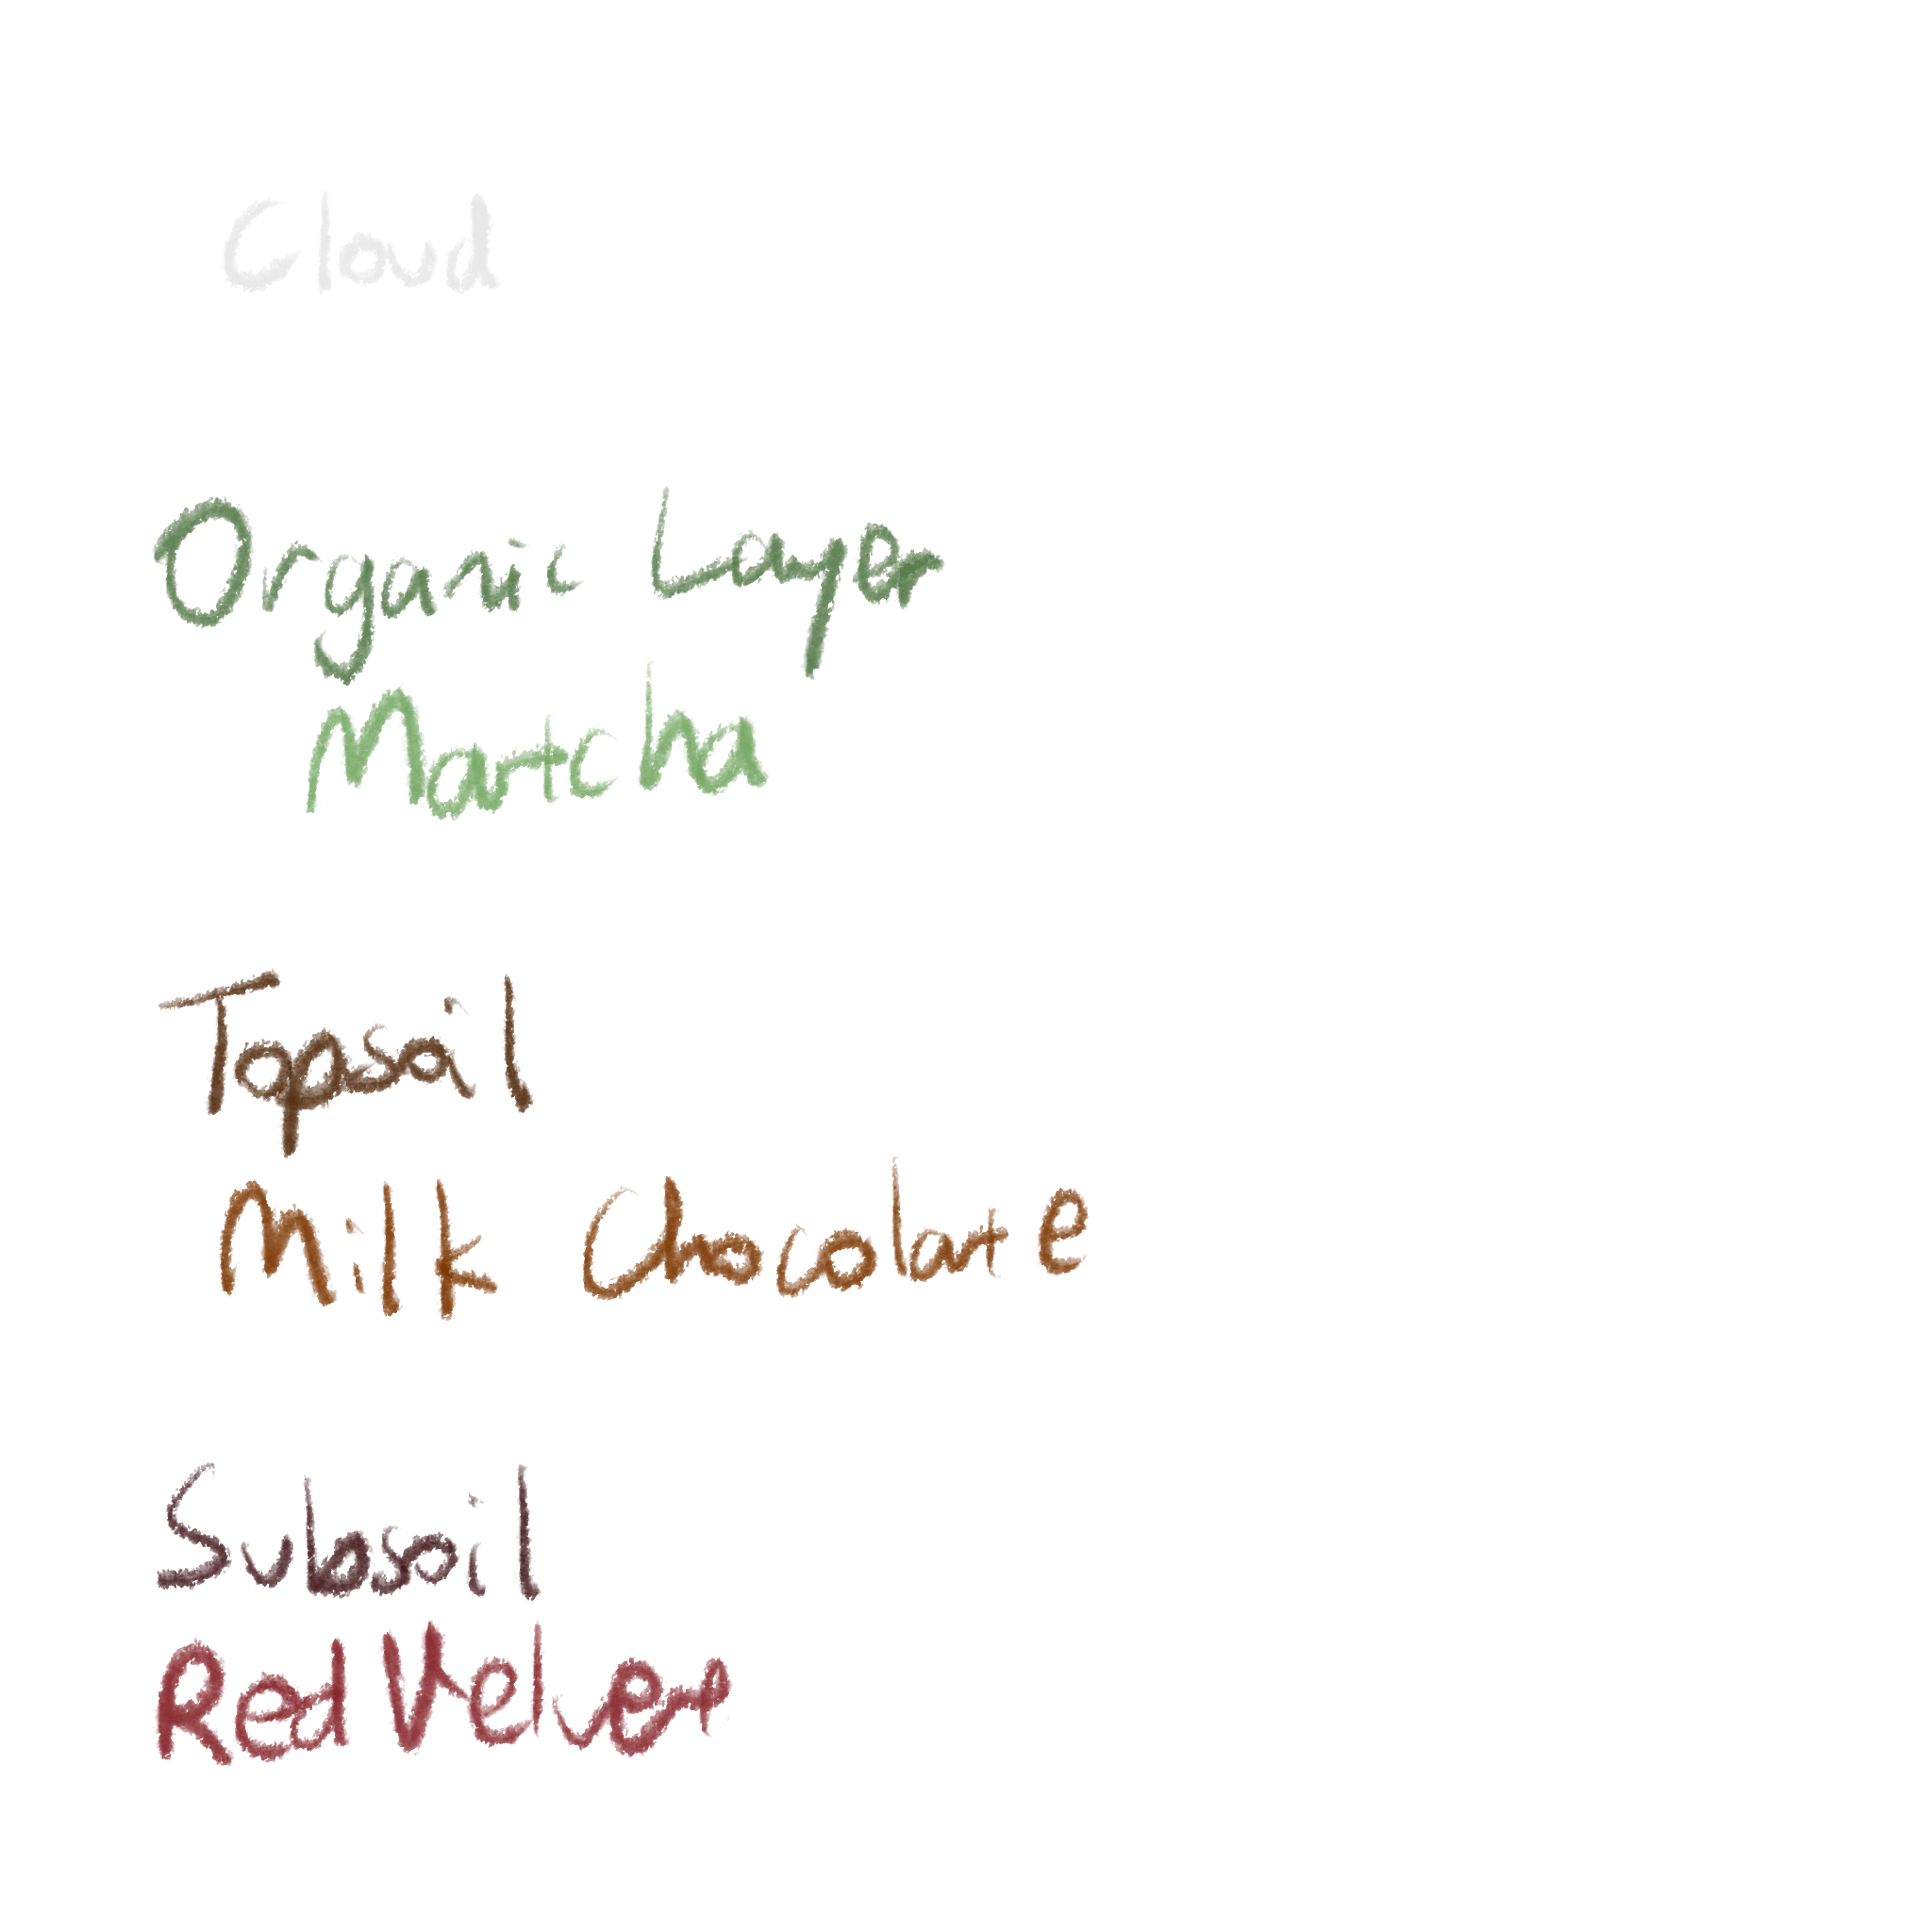 Cloud
Organic Layer
Matcha
Topsoil
Milk Chocolate
Subsoil
Red Velvet